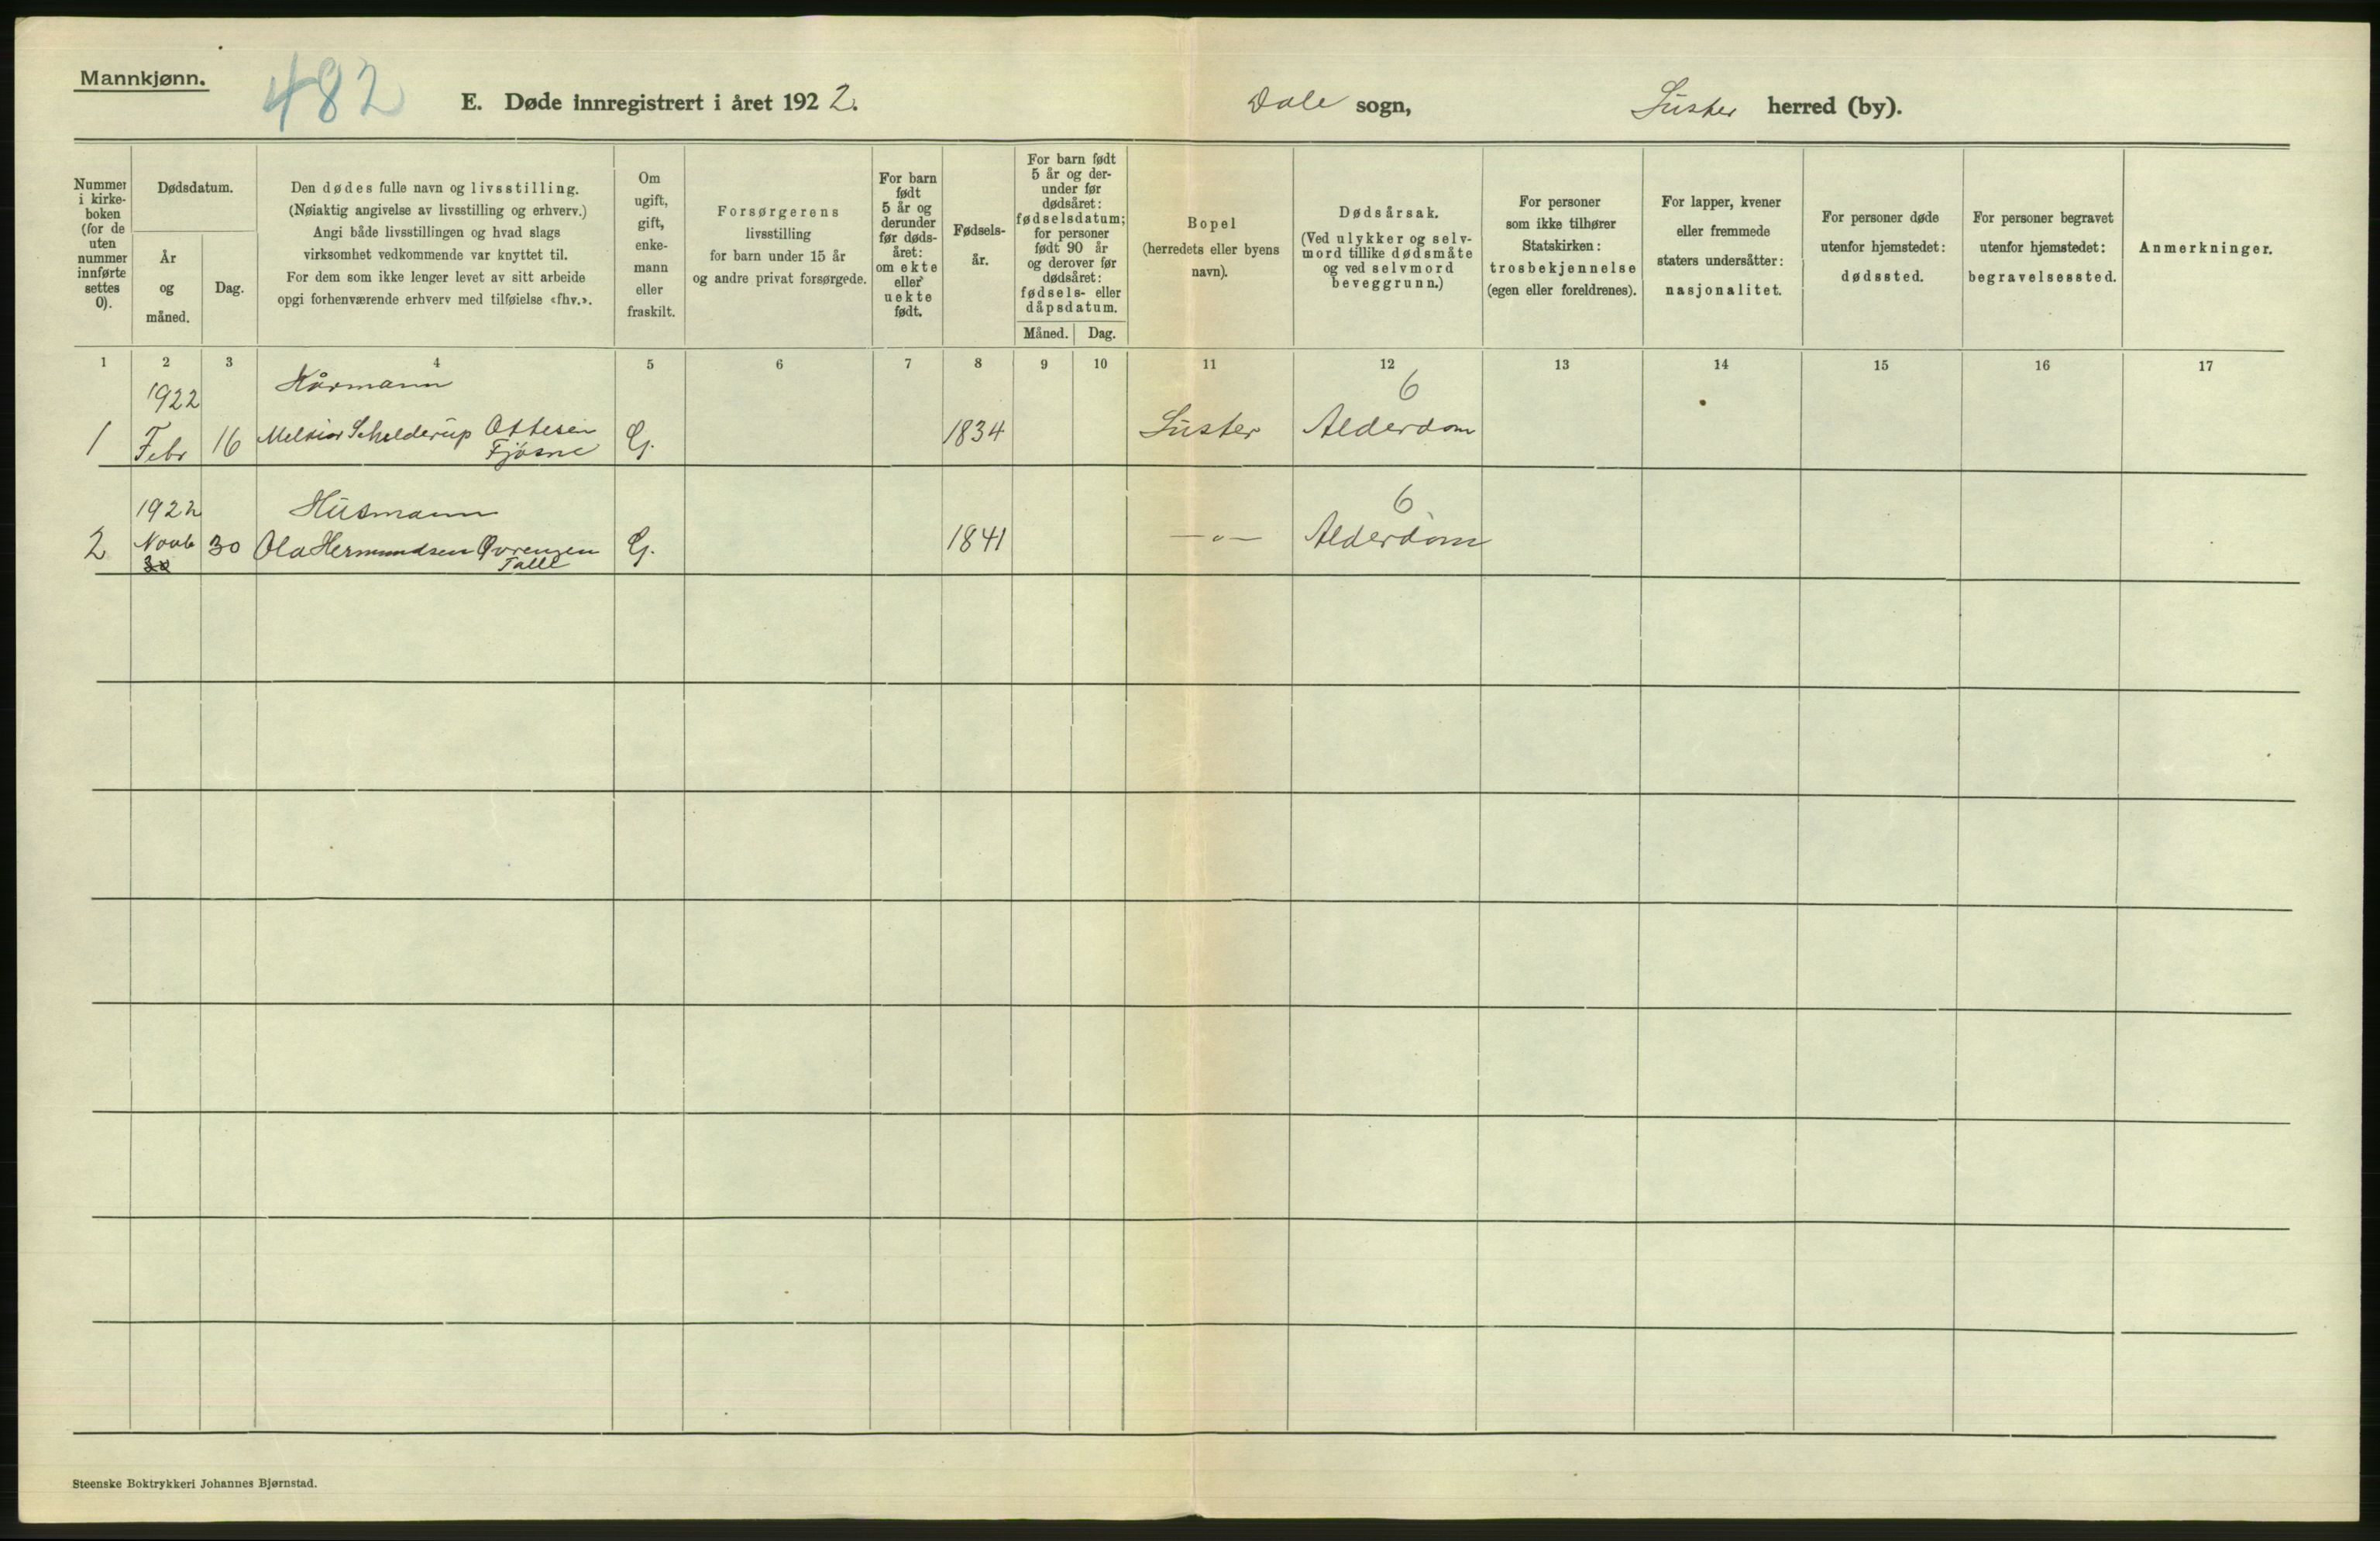 Mannkjønn.
482
E. Døde innregistrert i året 1922.
Dale sogn,
Luster herred (by).
Nummer
i kirke-
boken
(for de
uten
nummer
innførte
settes
0).
Dødsdatum.
År
og
måned.
Dag.
Den dødes fulle navn og livsstilling.
(Nøiaktig angivelse av livsstilling og erhverv.)
Angi både livsstillingen og hvad slags
virksomhet vedkommende var knyttet til.
For dem som ikke lenger levet av sitt arbeide
opgi forhenværende erhverv med tilføielse «fhv.».
Om
ugift,
gift,
enke-
mann
eller
fraskilt.
Forsørgerens
livsstilling
for barn under 15 år
og andre privat forsørgede.
For barn
født
5 år og
derunder
før døds-
året:
om ekte
eller
uekte
født.
Fødsels-
år.
For barn født
5 år og der-
under før
dødsåret:
fødselsdatum;
for personer
født 90 år
og derover før
dødsåret:
fødsels- eller
dåpsdatum.
Måned. Dag.
Bopel
(herredets eller byens
navn).
Dødsårsak.
(Ved ulykker og selv-
mord tillike dødsmåte
og ved selvmord
beveggrunn.)
For personer
som ikke tilhører
Statskirken:
trosbekjennelse
(egen eller foreldrenes).
For lapper, kvener
eller fremmede
staters undersåtter:
nasjonalitet.
For personer døde
utenfor hjemstedet:
dødssted.
For personer begravet
utenfor hjemstedet:
begravelsessted.
Anmerkninger.
1 2 3 4 5 6 7 8 9 10 11 12 13 14 15 16 17
1922 Kårmann 6
1 Febr 16 Melkior Schelderup Ottesen G. 1834 Luster Alderdom
Fjøsne
1922 Husmann 6
2 Novb 30 Ola Hermundsen Øvrengen G. 1841 —〃— Alderdom
30 Talle
Steenske Boktrykkeri Johannes Bjørnstad.